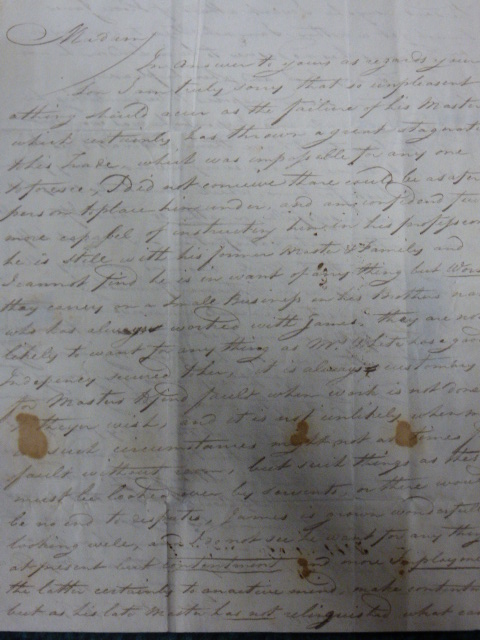 Madam
In answer to yours as regards your
son I am truly sorry that so unpleasant
a thing should occur as the failure of his Master
which certainly has thrown a great stagnati
this trade, which was impossible for any one
to foresee, I did not conceive thare could be a
person to place him under, and am confidend
more capabel of instructing him in his profession
he is still with his former Master & Family and
I cannot find he is in want of any thing but Wor
they carry on a small Business in his Brothers na
who has always worked with James they are not
likely to want for any thing as Mrs White has a good
Indepency round them, it is always customary
for Masters to find fault when work is not done
to theyr wish, and it is not unlikely when
such circumstances might not at times
fault without , but such things as these
must be looked over by servants, or there woud
be no end to disputes, James is grown wonderful
looking well, and I do not see he want for any thing
at present but and more Employme
the latter certainly to an active mind, make contentm
but as his late Master has not relinquisted what